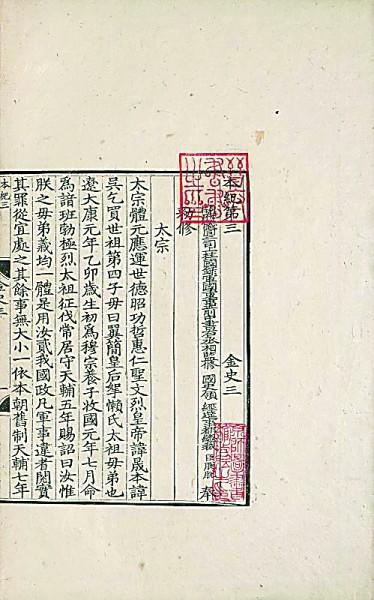 本紀第三 金史三
國史領 經筵事都總裁臣脫脫奉
敕修
太宗
太宗體元應運世德昭功哲惠仁聖文烈皇帝諱晟本諱
吳乞買世祖第四子母曰翼簡皇后拏懶氏太祖母弟也
遼大康元年乙卯歲生初爲穆宗養子收國元年七月命
爲諳班勃極烈太祖征伐常居守天輔五年賜詔曰汝惟
朕之母弟義均一體是用汝貳我國政凡軍事違者閱實
其罪從宜處之其餘事無大小一依本朝舊制天輔七年
本紀三 金史三 一